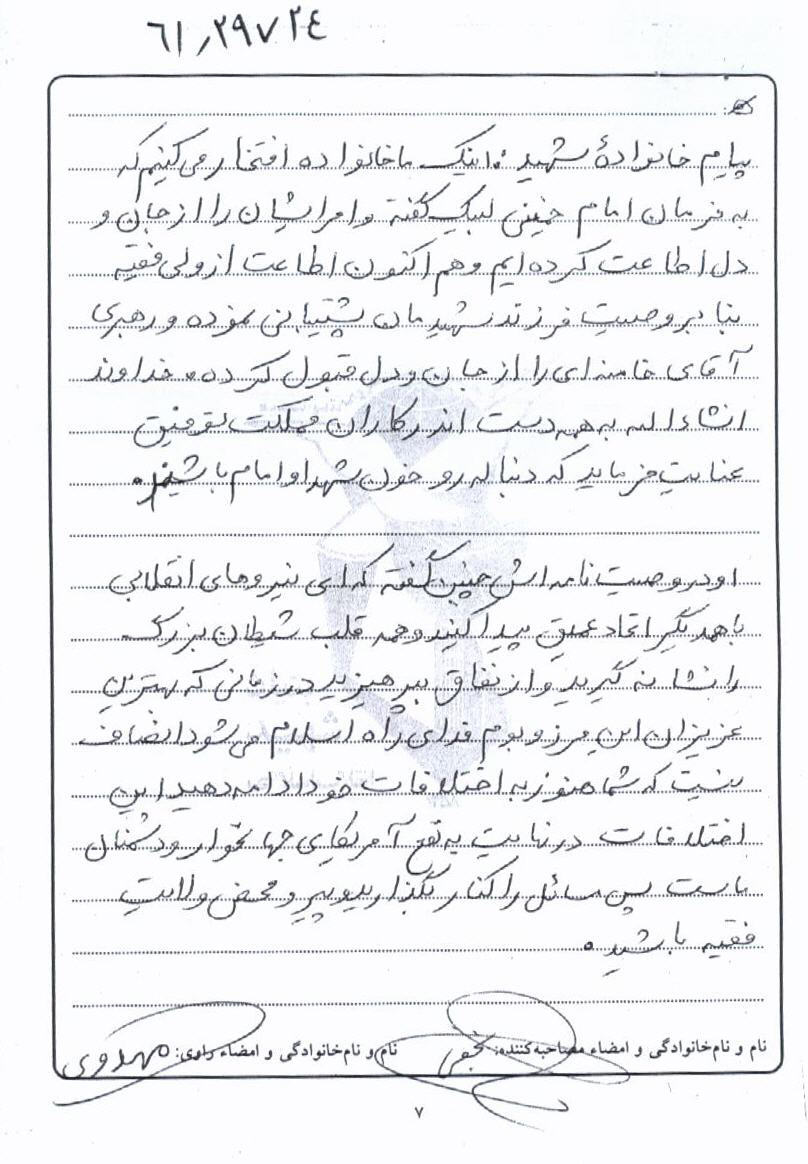 ۶۱٫۲۹۷۲۴
پیام خانوادهٔ شهید: اینک ما خانواده افتخار می کنیم که
به فرمان امام خمینی لبیک گفته و امر ایشان را از جان و
دل اطاعت کرده ایم و هم اکنون اطاعت از ولی فقیه
بنا بر وصیت فرزند شهیدمان پشتیبانی نموده و رهبری
آقای خامنه ای را از جان و دل قبول کرده. خداوند
انشاءالله به همه دست اندرکاران مملکت توفیق
عنایت فرماید که دنباله رو خون شهدا و امام باشیم.
او در وصیت نامه اش چنین گفته که ای نیروهای انقلابی
با همدیگر اتحاد عمیق پیدا کنید و همه قلب شیطان بزرگ
را نشانه گیرید و از نفاق بپرهیزید در زمانی که بهترین
عزیزان این مرز و بوم فدای راه اسلام می شود انصاف
نیست که شما هنوز به اختلافات خود ادامه دهید این
اختلافات در نهایت به نفع آمریکای جهانخوار و دشمنان
ماست پس مسائل را کنار بگذارید و پیرو محض ولایت
فقیه باشید.
نام و نام خانوادگی و امضاء مصاحبه کننده: نجفی نام و نام خانوادگی و امضاء راوی: مهدوی
۷